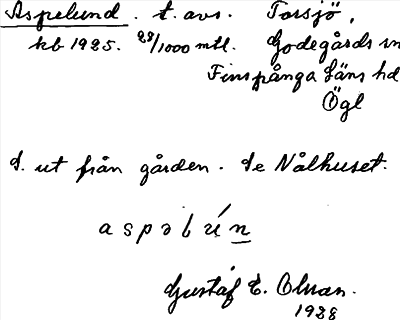 Aspelund. t. avs. Torsjö,
kb 1925. 23/1000 mtl. Godegårds sn
Finspånga läns hd
Ögl
d. ut från gården. Se Nålhuset.
Gustaf E.
1928